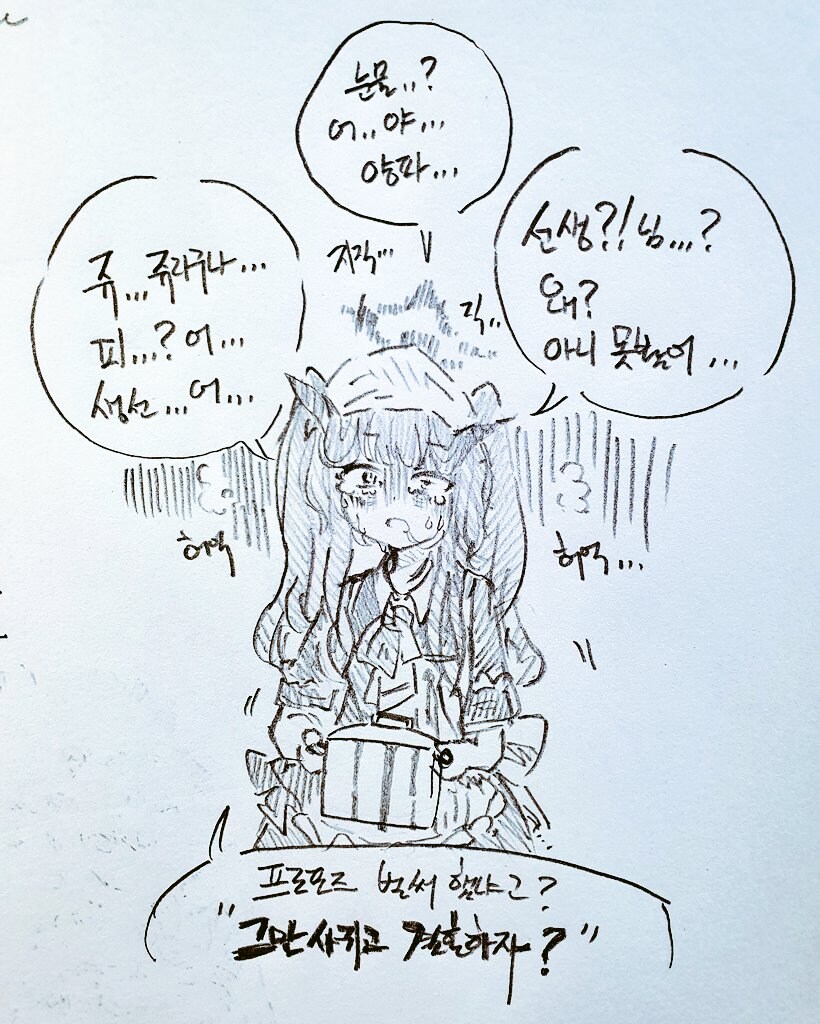 눈물..?
어..야...
양파...
쥬...쥬라구나...
피...? 어...
생선...어...
선생?!님...?
왜?
아니 못봤어...
지직...
직..
허억
허억...
프로포즈 벌써 했냐고?
"그만 사귀고 결혼하자?"